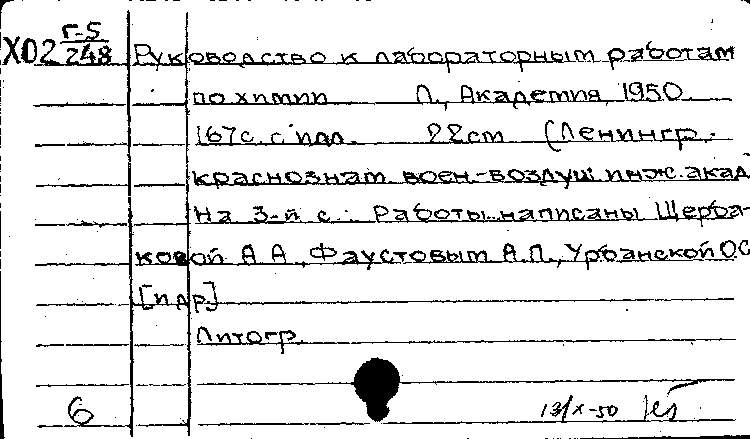 Х02 Г-5/248 Руководство к лабораторным работам
по химии Л., Академия, 1950.
167с. с илл. 22см (Ленингр.
краснознам. воен.-воздуш. инж. акад
На 3-й с.: Работы написаны Щерба-
ковой А.А., Фаустовым А.П., Урбанской О.С
[и др]
Литогр.
6 13/X-50